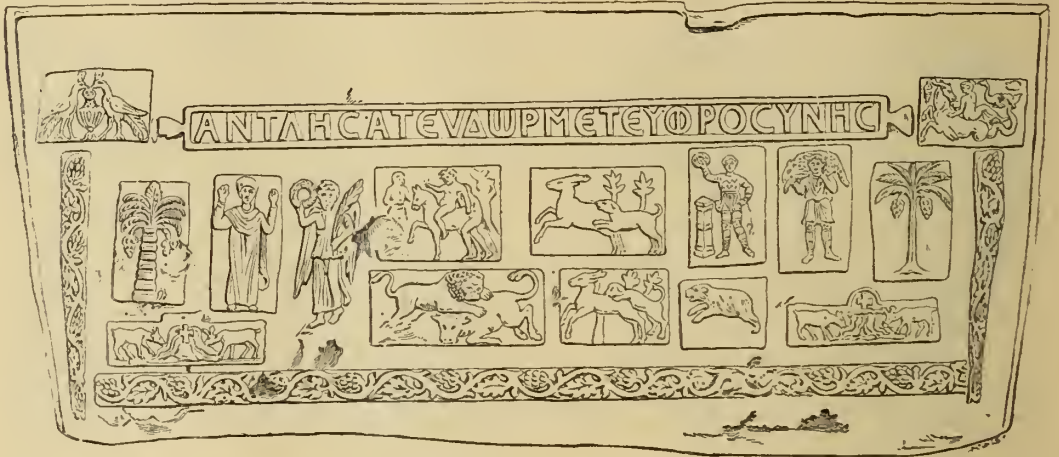 ΑΝΤΛΗϹΑΤΕΥΔΩΡΜΕΤΕΥΦΡΟϹΥΝΗϹ